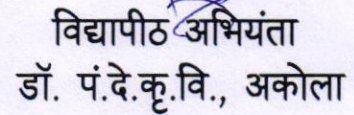 विद्यापीठ अभियंता
डॉ. पं.दे.कृ.वि., अकोला